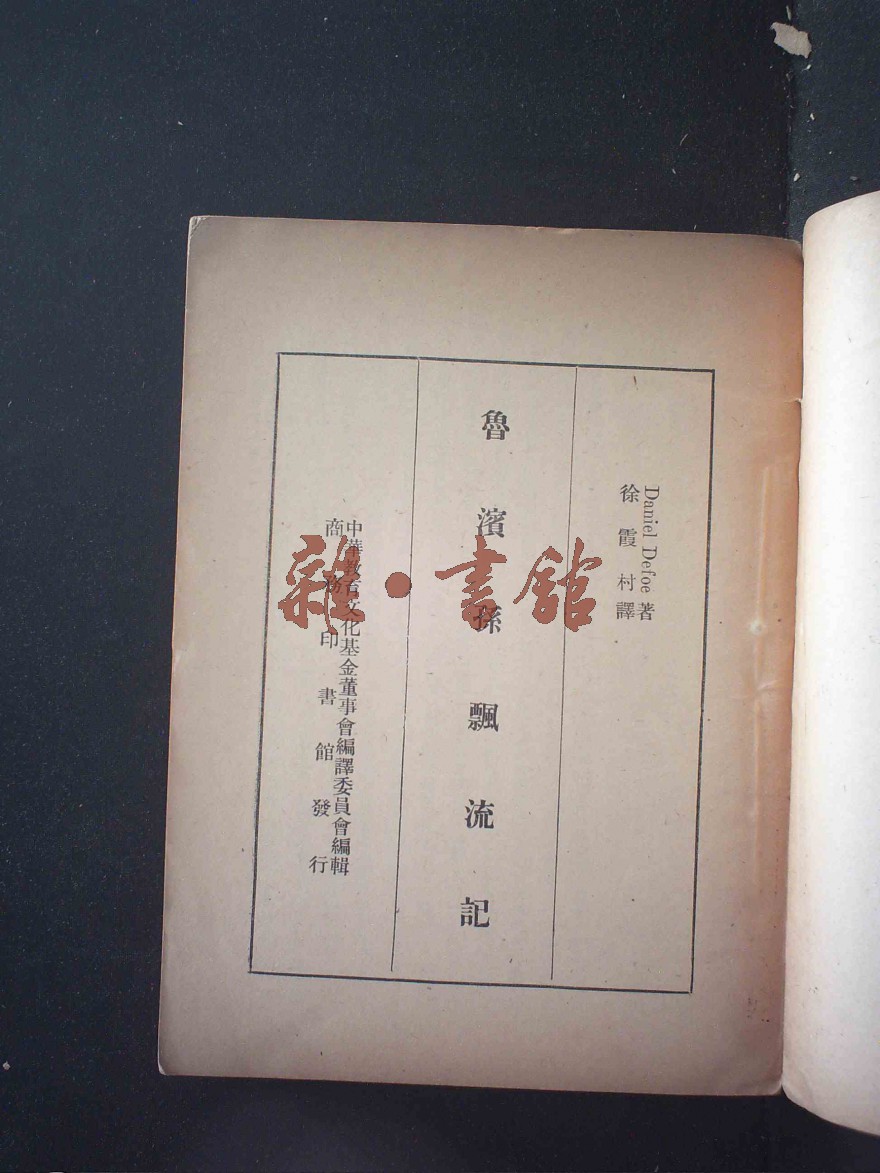 Daniel Defoe 著
徐霞村譯
魯濱孫飄流記
中華教育文化基金董事會編譯委員會編輯
商務印書館發行
雜·書館